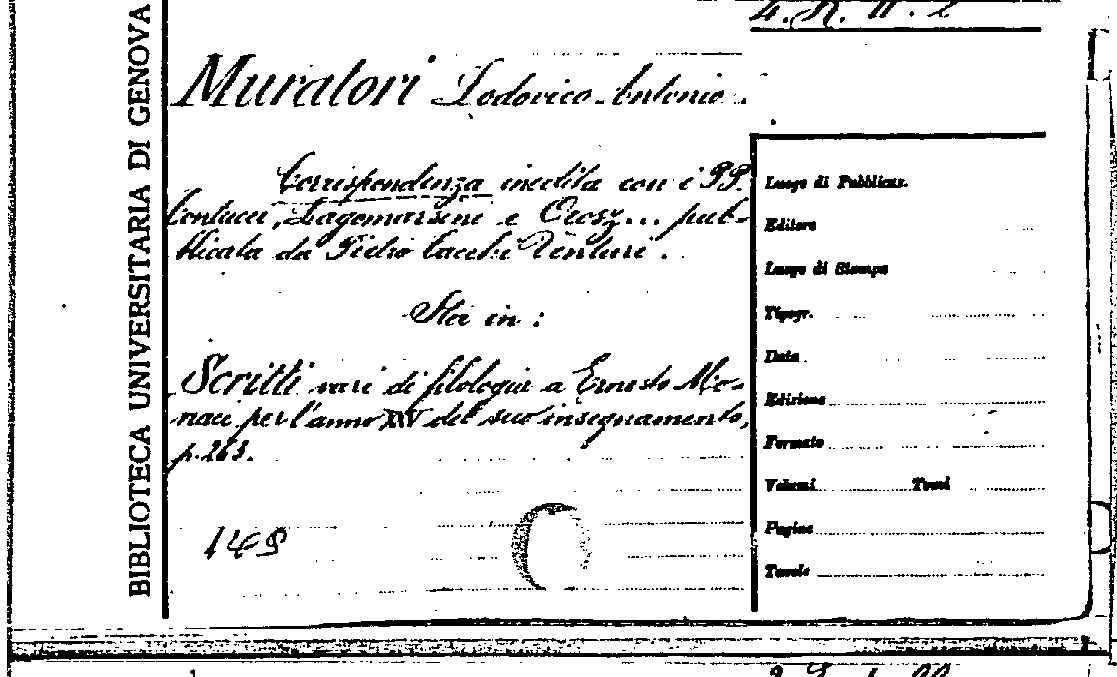 4. R. II. 2
BIBLIOTECA UNIVERSITARIA DI GENOVA
Muratori Lodovico Antonio.
Corrispondenza inedita con i PP.
Contucci, Lagomarsini e Orosz... pub-
blicata da Pietro Tacchi Venturi.
Sta in:
Scritti vari di filologia a Ernesto Mo-
naci per l'anno XXV del suo insegnamento,
p. 263.
149
Luogo di Pubblicaz.
Editore
Luogo di Stampa
Tipogr.
Data
Edizione
Formato
Volumi Tomi
Pagine
Tavole